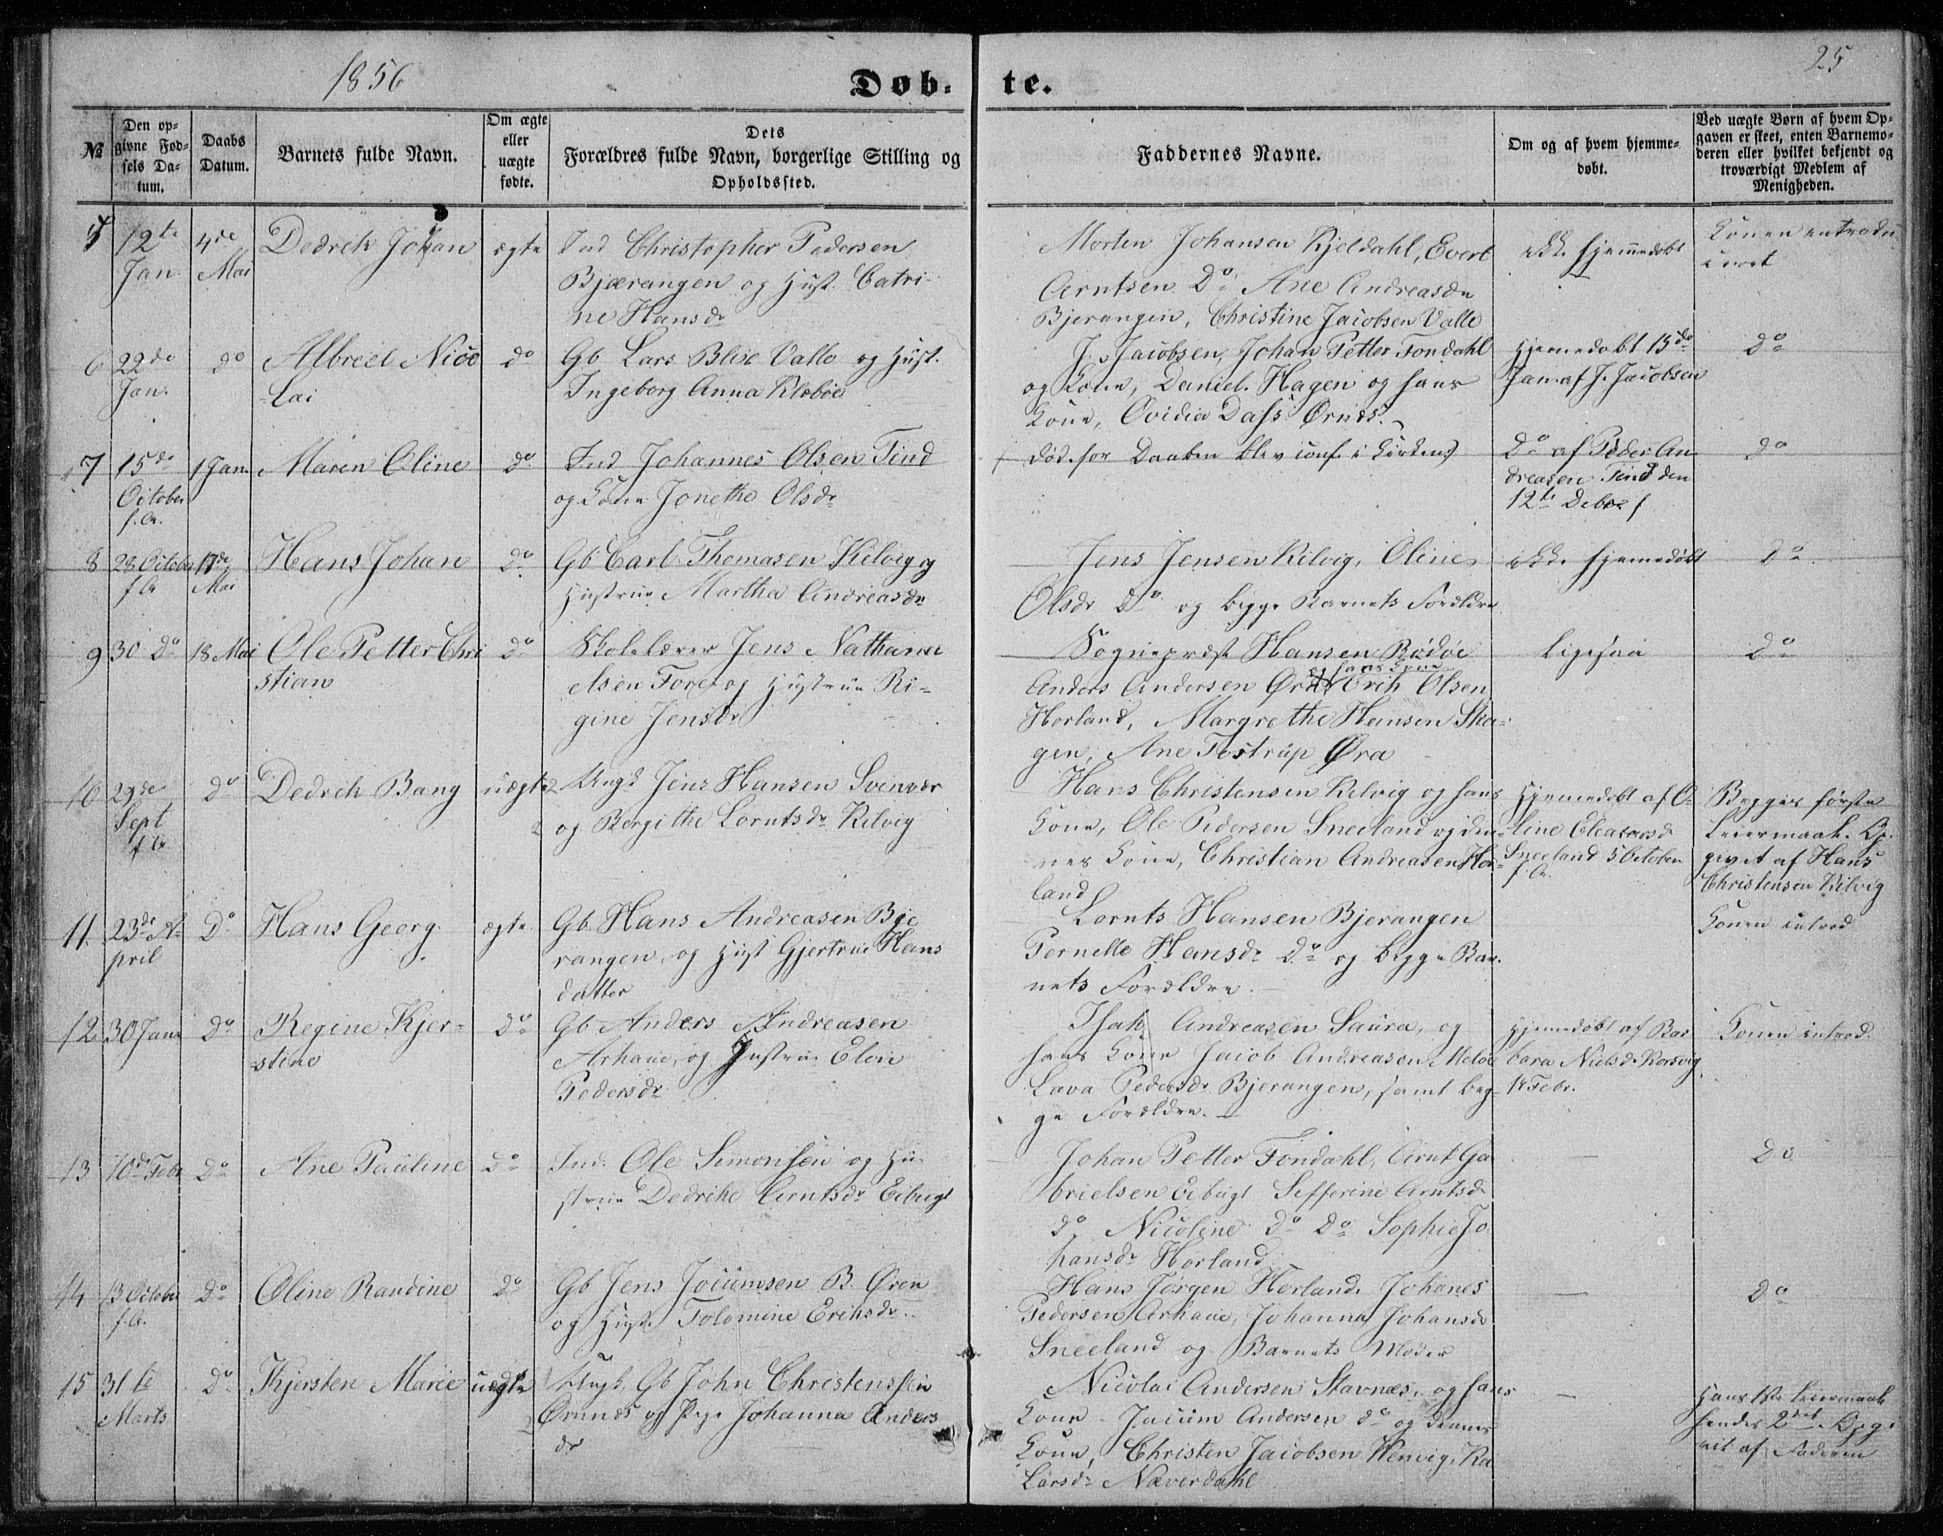 1856
Døb-
te.
25
№
Den op-
givne Fød-
sels Da-
tum.
Daabs
Datum.
Barnets fulde Navn.
Om ægte
eller
uægte
fødte.
Dets
Forældres fulde Navn, borgerlige Stilling og
Opholdssted.
Faddernes Navne.
Om og af hvem hjemme-
døbt.
Ved uægte Børn af hvem Op-
gaven er skeet, enten Barnemo-
deren eller hvilket bekjendt og
troværdigt Medlem af
Menigheden.
5
12te
Jan
4de
Mai
Dedrik Johan
ægte
Ind Christopher Pedersen
Bjærangen og Hust. Catri-
ne Hansdr
Morten Johansen Kjeldahl, Evert
Arntsen Do Ane Andreasdr
Bjerangen, Christine Jacobsen Valle
ikke hjemmedøbt
Konen introdu
ceret
6
22de
Jan.
do
Albrect Nico
-lai
do
Gb Lars Blix Valle og Hust.
Ingeborg Anna Klæboe
J. Jacobsen, Johan Petter Fondahl
og Kone, Daniel Hagen og hans
Kone, Ovidia Dass Ørnes.
Hjemedøbt 15de
Jan af J. Jacobsen
Do
7
15de
October
f. A.
1 Jan.
Maren Oline
do
Ind Johannes Olsen Tind
og Kone Jonetha Olsdr
død før Daaben blev conf i Kirken)
Do af Peder An
dreasen Tind den
12te Debr f
do
8
28 October
f A
17de
Mai
Hans Johan
do
Gb Carl Thomasen Kilvig og
Hustrue Martha Andreasdr
Jens Jensen Kilvig, Oline
Olsdr do og begge Barnets Forældre
ikke hjemedøbt
do
9
30 do
18 Mai
Ole Petter Chri
stian
do
Skolelærer Jens Nathana
elsen Fore og Hustrue Ri-
gine Jensdr
Sognepræst Hansen Rødøe
og hans Kone
Anders Andersen Øra, Erik Olsen
Horland, Margrethe Hansen Ska-
gen, Ane Tostrup Øra
Ligesaa
do
10
29de
Sept
f A
do
Dedrik Bang
uægte
Ungk Jens Hansen Svenvær
og Bergithe Lorntsdr Kilvig
Hans Christensen Kilvig og hans
Kone, Ole Pedersen Sneeland og den-
nes Kone, Christian Andreasen Hor-
land
Hjemedøbt af O-
line Eleasersdr
Sneeland 5 October
f. A.
Begges første
Leiermaal. Op-
givet af Hans
Christensen Kilvig
11.
23de A-
pril
Do
Hans Georg.
ægte.
Gb Hans Andreasen Bje
rangen og Hust Gjertrue Hans
datter
Lornts Hansen Bjerangen
Pernelle Hansdr do og begge Bar
nets Forældre.
Konen introd
12
30 Jan
do
Regine Kjer-
stine
do
Gb Anders Andreasen
Arhaue, og Hustrue Elen
Pedersdr
Isak Andreasen Saura, og
hans Kone Jacob Andreasen Meløe
Lava Pedersdr Bjerangen, samt beg-
ge Forældre.
Hjemedøbt af Bar
bara Nielsdr Korsvig
18 Febr.
Konen introd.
13
10de Febr
Do
Ane Pauline
Do
Ind. Ole Simonsen og Hu-
strue Dedrike Arntsdr Eibugt
Johan Petter Fondahl, Arnt Ga
brielsen Eibugt Sefferine Arntsdr
do Nicoline Do Do Sophie Jo
hansdr Horland
Do
14
13 October
f. A.
Do
Oline Randine
Do
Gb Jens Jocumsen B. Øren
og Hust Tolomine Eriksdr.
Hans Jørgen Horland. Johanes
Pedersen Arhaue, Johanna Johansdr
Sneeland og Barnets Moder
Do
15
31te
Marts
Do
Kjersten Marie
uægte
Ungk. Gb John Christenssen
Ørnnæs og Pige Johanna Anders
dr
Nicolai Andersen Stavnæs, og hans
Kone Jacum Andersen do og dennes
Kone, Christen Jacobsen Henvig, Ka
Larsdr Næverdahl
Hans 1ste Leiermaal
hendes 2det. Opg-
ivet af Faderen